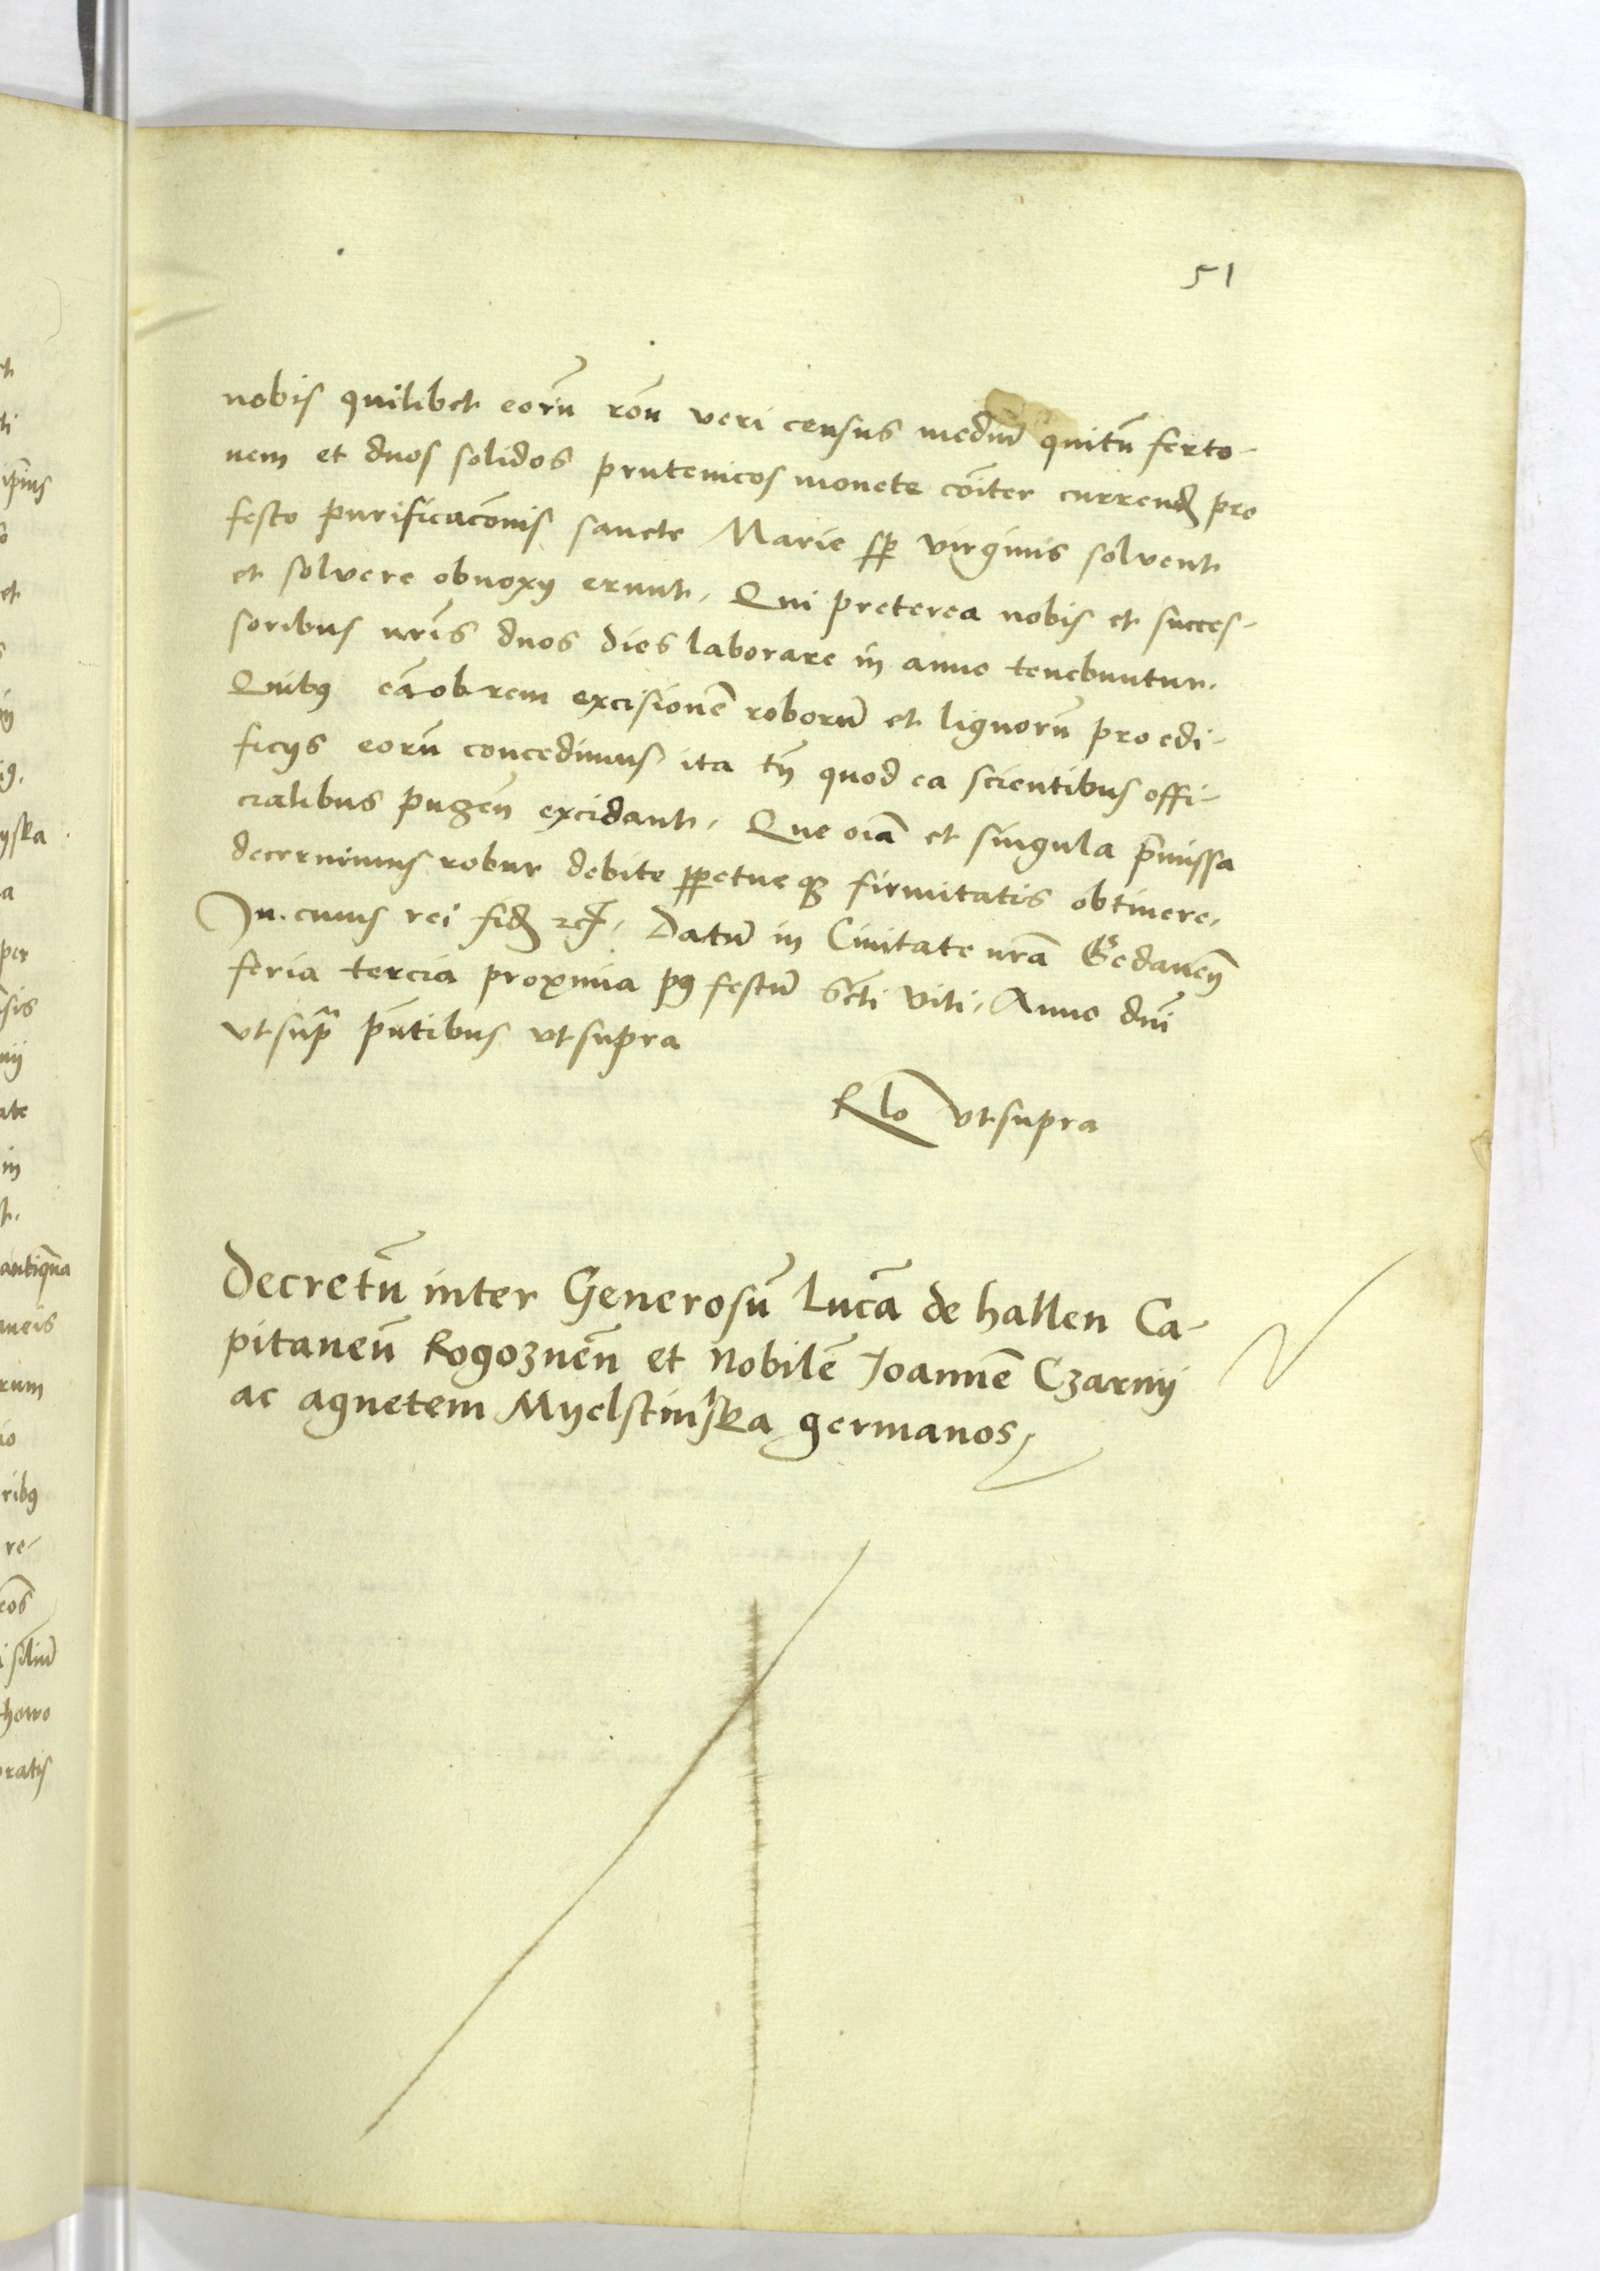 51
nobis quilibet eorū rōn veri census mediū quītū ferto-
nem et duos solidos prutenicos monete cōiter currend pro
festo purificacōnis sancte Marie sp virginis solvent
et solvere obnoxy erunt. Qui preterea nobis et succes-
soribus nrīs duos dies laborare in anno tenebuntur.
Quibus eā ob rem excisionē roborū et lignorū pro edi-
ficys eorū concedimus ita tn̄ quod ea scientibus offi-
cialibus pugēn excidant. Que oīa et singula p̄missa
decernimus robur debite ppetue q firmitatis obtinere.
In cuius rei fid Datū in Civitate nrā Gedaneñ
feria tercia proxima p9 festū Scti Viti. Anno dnī
ut sup̄ p̄ntibus ut supra
Rlo ut supra
Decretū inter Generosū Lucā de hallen Ca-
pitaneū Rogoznēn et Nobilē Joannē Czarny
ac agnetem Myelstinska germanos